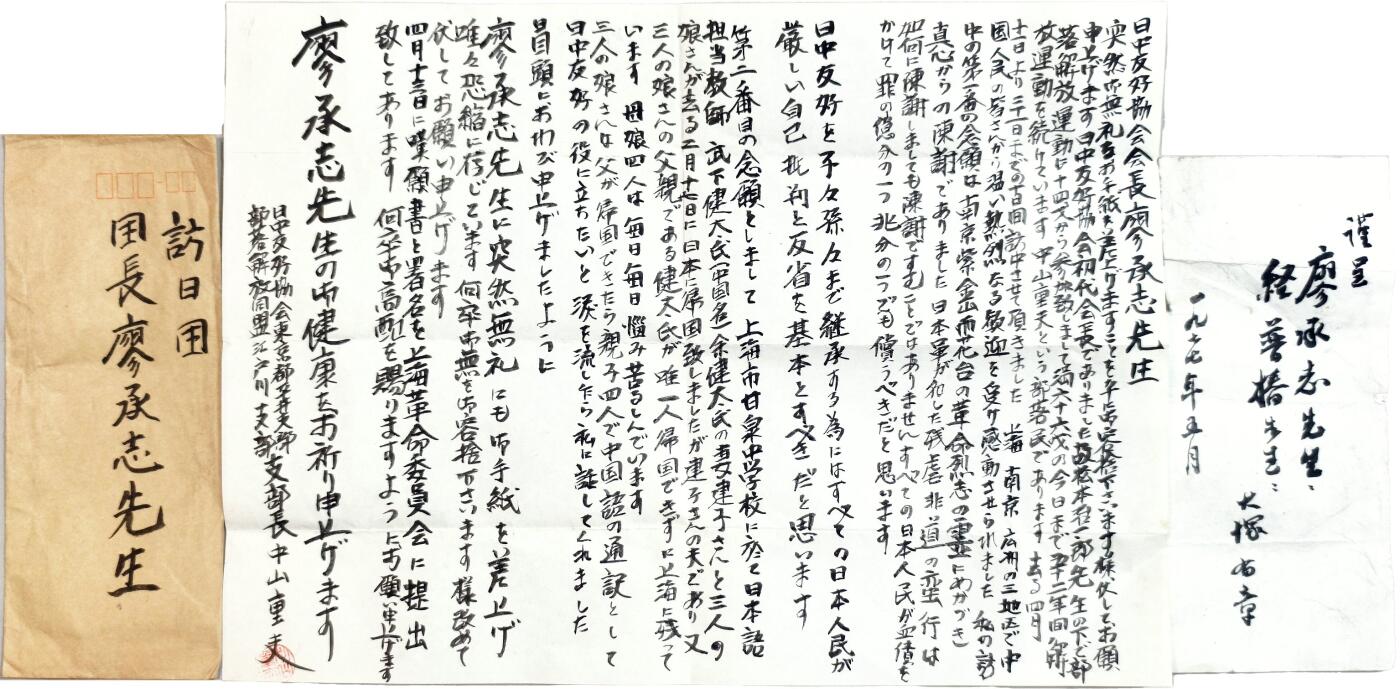 謹呈
廖承志先生:
経普椿先生:
大塚有章
年五月
日中友好協会会長廖承志先生
突然御無礼なお手紙を差上げますことを平に御容捨下さいます様伏してお願
申上げます 日中友好協会初代会長でありました故松本治一郎先生の下で部
落解放運動に十四才から参加致しまして満六十六才の今日まで五十二年間解
放運動を続けています 中山重夫という部落民であります 去る四月
十日より三十一日までの間訪中させて頂きました 上海 南京 広州の三地区で中
国人民の皆さんから温い熱烈なる歓迎を受け感動させられました 私の訪
中の第一番の念願は南京紫金山雨花台の革命烈志の霊にぬかづき
真心からの陳謝でありました 日本軍が犯した残虐非道の蛮行は
如何に陳謝しましても陳謝ですむことではありません すべての日本人民が血債を
かけて罪の億分の一つ兆分の一つでも償うべきだと思います
日中友好を子々孫々まで継承する為にはすべての日本人民が
厳しい自己批判と反省を基本とすべきだと思います
第二番目の念願としまして 上海市甘泉中学校に於て日本語
担当教師 武下健大氏(中国名)余健大氏の妻建子さんと三人の
娘さんが去る二月十七日に日本に帰国致しましたが建子さんの夫であり又
三人の娘さんの父親である健大氏が唯一人帰国できずに上海に残って
います 母娘四人は毎日毎日悩み苦るしんでいます
三人の娘さんは父が帰国できたら親子四人で中国語の通訳として
日中友好の役に立ちたいと涙を流したら私に話してくれました
冒頭におわび申上げましたように
廖承志先生に突然無礼にもお手紙を差上げ
唯々恐縮に存じています 何卒御無礼を御容捨下さいます様改めて
伏してお願い申上げます
四月十三日に嘆願書と署名を上海革命委員会に提出
致してあります 何卒御高配を賜りますようにお願い申上げます
廖承志先生の御健康をお祈り申上げます
日中友好協会東京都荒井支部
部落解放同盟江戸川支部 支部長 中山重夫
訪日団
団長廖承志先生